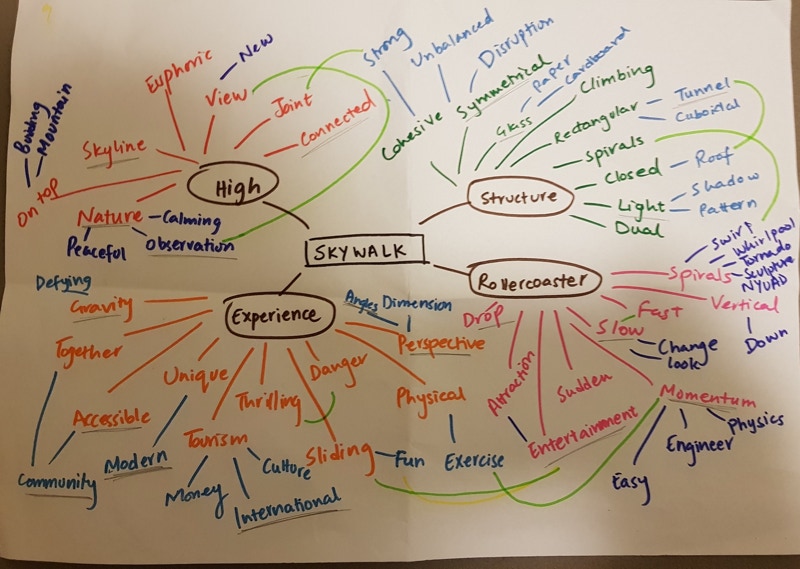 New
Euphoric
View
Joint
Connected
Building
Mountain
Skyline
On top
High
Nature
Calming
Peaceful
Observation
Strong
Unbalanced
Disruption
Cohesive
Symmetrical
Paper
Cardboard
Glass
Climbing
Rectangular
Tunnel
Cuboidal
Spirals
Closed
Roof
Structure
Light
Shadow
Pattern
Dual
SKYWALK
Rollercoaster
Spirals
Swirl
Whirlpool
Tornado
Sculpture
NYUAD
Vertical
Down
Drop
Fast
Slow
Change
look
Attraction
Sudden
Entertainment
Momentum
Physics
Engineer
Easy
Experience
Defying
Gravity
Together
Accessible
Community
Unique
Modern
Thrilling
Tourism
Money
Culture
International
Danger
Sliding
Fun
Angles
Dimension
Perspective
Physical
Exercise